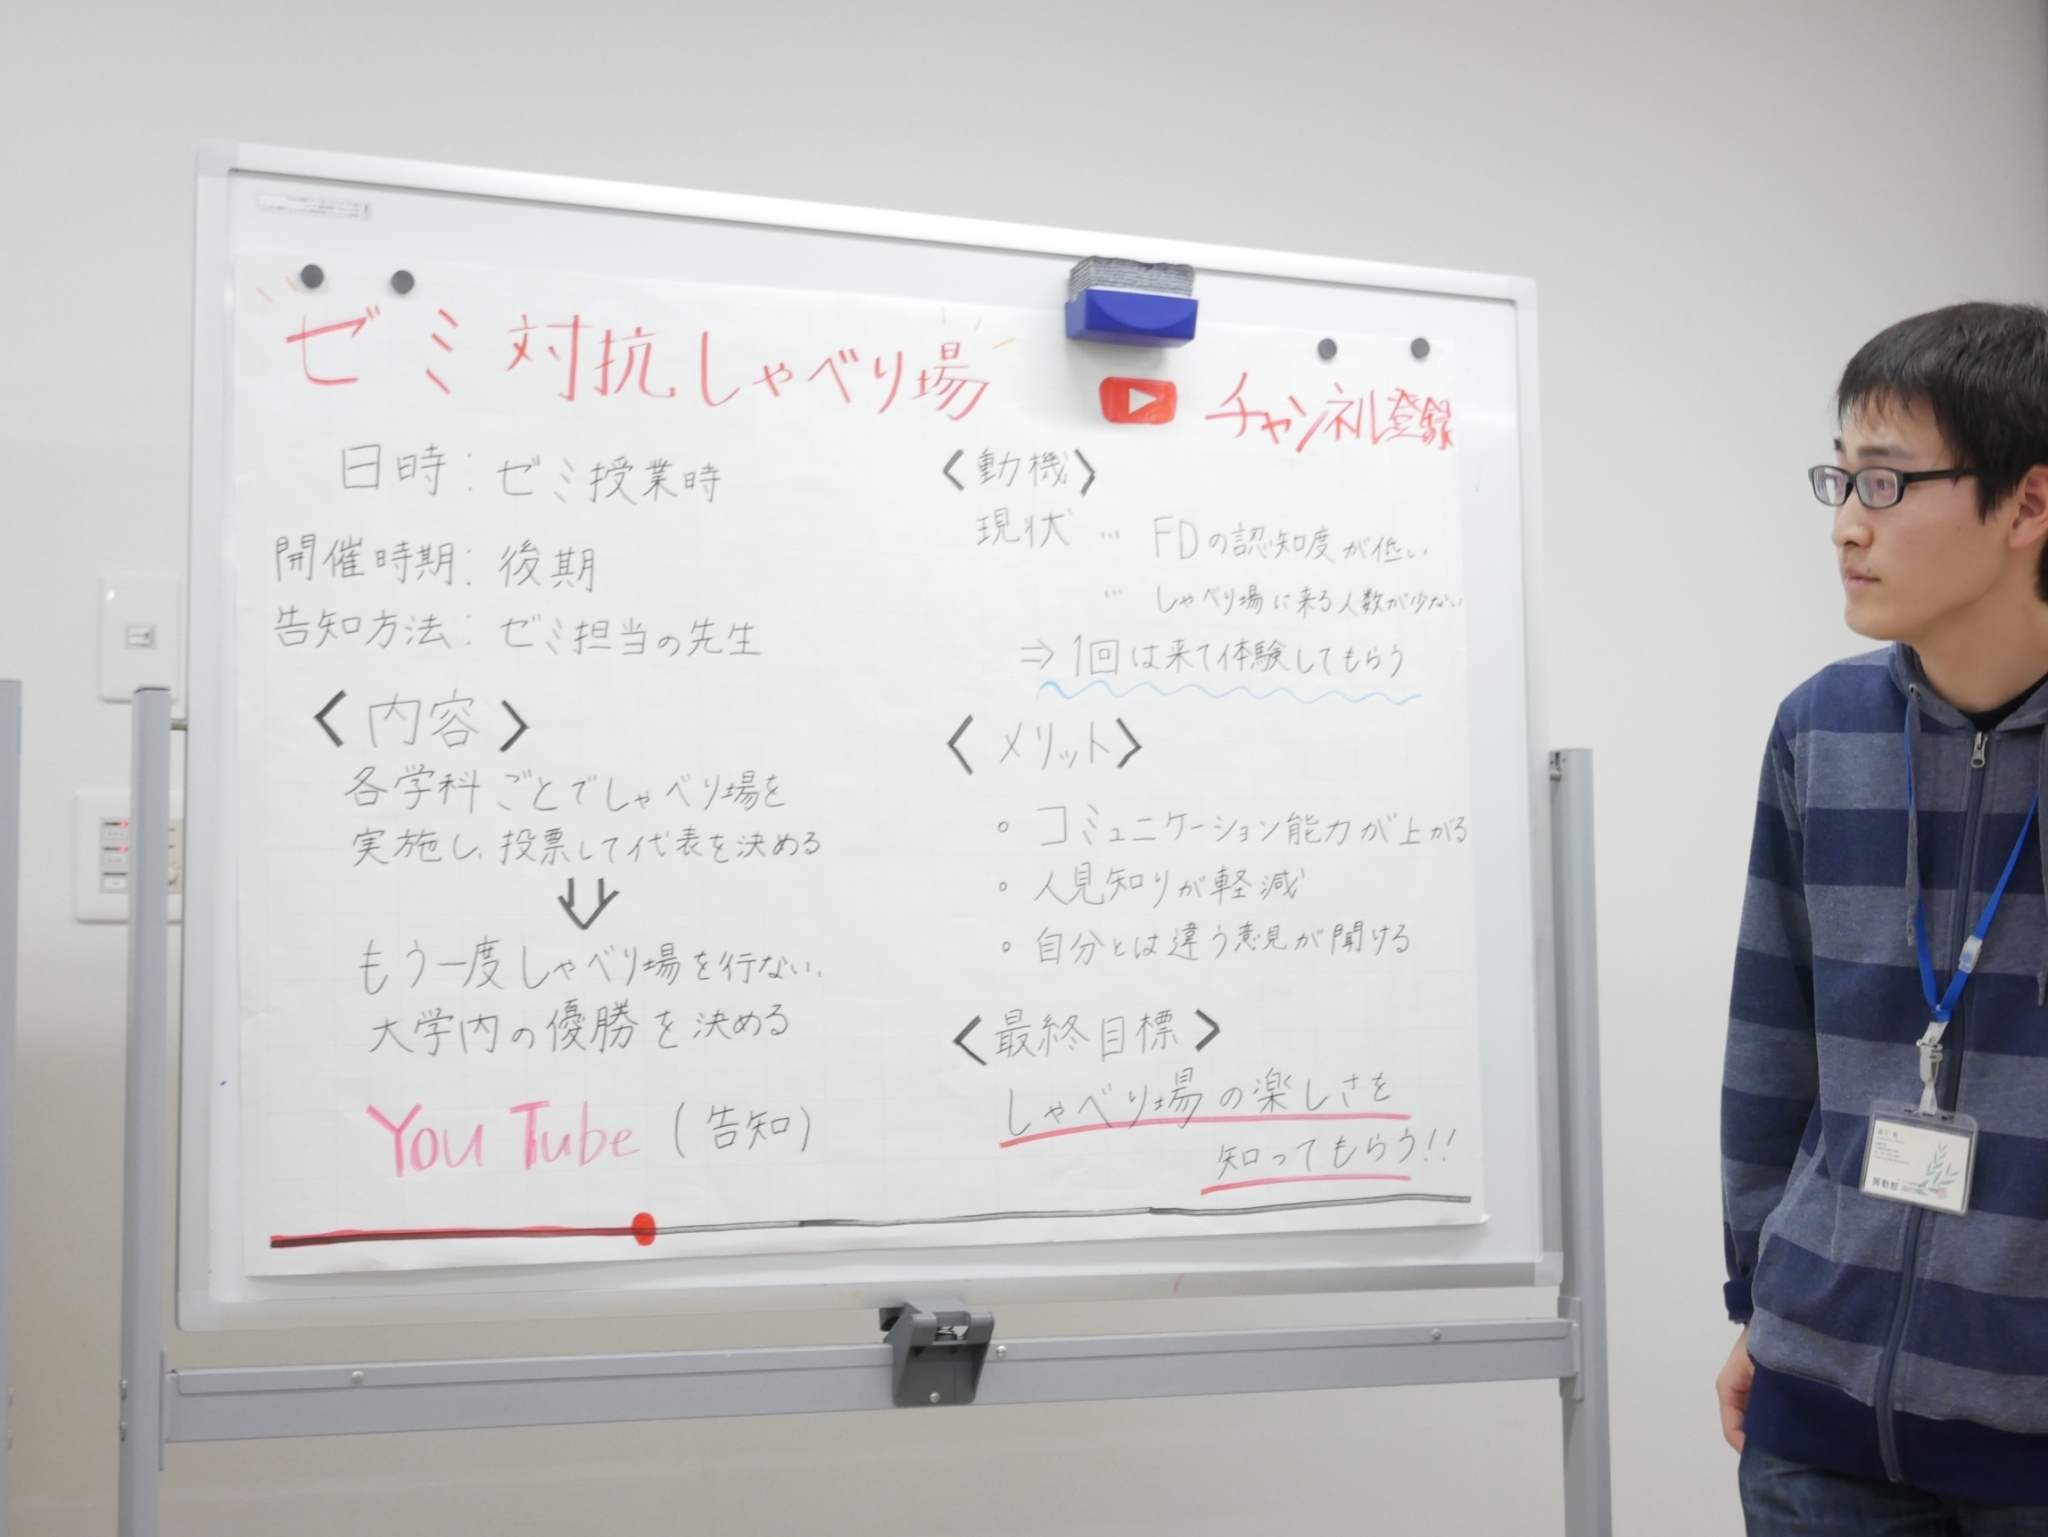 ゼミ対抗しゃべり場
チャンネル登録
日時：ゼミ授業時
開催時期：後期
告知方法：ゼミ担当の先生
〈内容〉
各学科ごとでしゃべり場を
実施し、投票して代表を決める
⇓
もう一度しゃべり場を行ない、
大学内の優勝を決める
YouTube（告知）
〈動機〉
現状 … FDの認知度が低い
… しゃべり場に来る人数が少ない
⇒ 1回は来て体験してもらう
〈メリット〉
。コミュニケーション能力が上がる
。人見知りが軽減
。自分とは違う意見が聞ける
〈最終目標〉
しゃべり場の楽しさを
知ってもらう!!